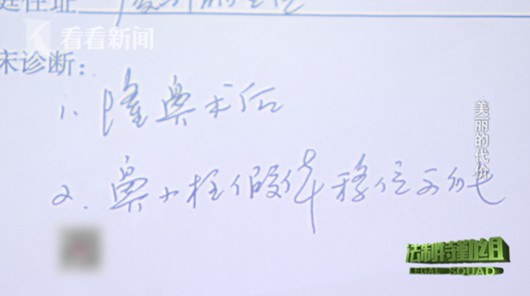 庭住址
看看新闻
末诊断:
1. 隆鼻术后
2. 鼻小柱假体移位可能
美丽的代价
法制特勤组
LEGAL SQUAD